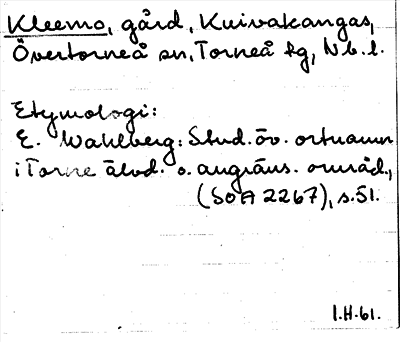 Kleemo, gård, Kuivakangas,
Övertorneå sn, Torneå tg, Nb. l.
Etymologi:
E. Wahlberg: Stud. öv. ortnamn
i Torne älvd. o. angräns. områd.,
(SOA 2267), s. 51.
I.H.61.